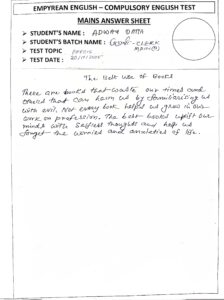 EMPYREAN ENGLISH – COMPULSORY ENGLISH TEST
MAINS ANSWER SHEET
➤ STUDENT'S NAME : ADWAY DATTA
➤ STUDENT'S BATCH NAME : GSDE - CLERK MAINS
➤ TEST TOPIC : PRECIS
➤ TEST DATE :
The Best Use of Books
There are books that waste our times and
others that can harm us by familiarising us
with evil. Not every book helps us grow in our
work or profession. The best books uplift our
minds with selfless thoughts and help us
forget the worries and anxieties of life.